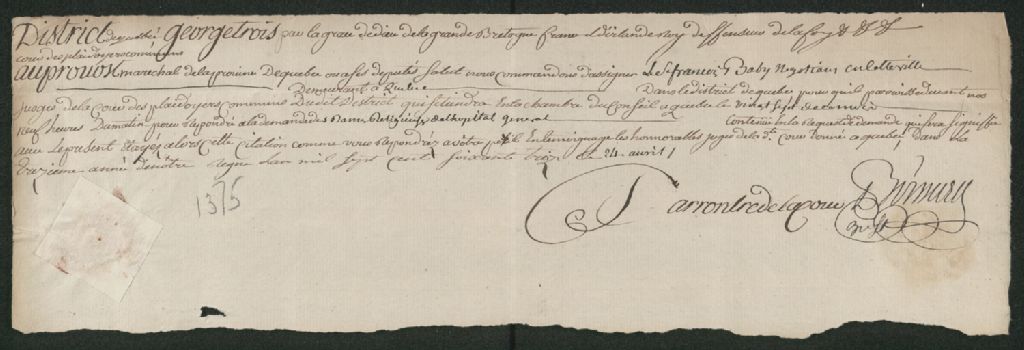 District de quebec georgetrois par la grace de dieu de la grande Bretagne france & dirlande Roy deffenseur de la foy & &c &c
cour des plaidoyers communs
au prouost marechal de la province De quebec ou a ses deputés Salut nous commandons d'assigner Le Sr francois Baby Negotiant en cette ville
Demeurant a Quebec Dans le district de quebec pour quil paroisse devant nos
juges de la cour des plaidoyers communs Dudit District qui se tiendra en la chambre du Conseil a quebec le vingt sept de ce mois
neuf heures Du matin pour repondre a la demande des Dames Religieuses de l'hopital general Contenue en la requeste de demande qui sera signiffié
avec le present et ayez alors cette citation comme vous repondrez a votre peril En temoignage les honorables juges de la de cour donné a quebec Dans la
treizieme année de notre regne Lan mil sept cent soixante treize le 24 avril
1375
Par ordre de la cour